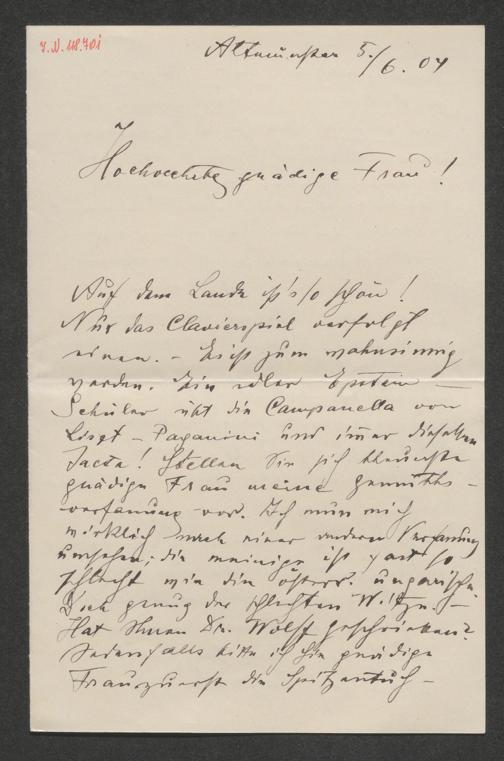 J.N. 118.701
Altmünster 5./6. 04
Hochverehrte gnädige Frau!
Auf dem Lande ist's so schön!
Nur das Clavierspiel verfolgt
einen. – Es ist zum wahnsinnig
werden. Ein edler Epstein –
Schüler übt die Campanella von
Liszt – Paganini und immer dieselben
Tacte! Stellen Sie sich theuerste
gnädige Frau meine Gemüths –
verfassung vor. Ich muss mich
wirklich nach einer andern Verfassung
umsehen; die meinige ist fast so
schlecht wie die österr. ungarische.
Doch genug der schlechten Witze. –
Hat Ihnen Dr. Wolff geschrieben?
Jedenfalls bitte ich Sie gnädige
Frau zuerst die Spitzentuch –